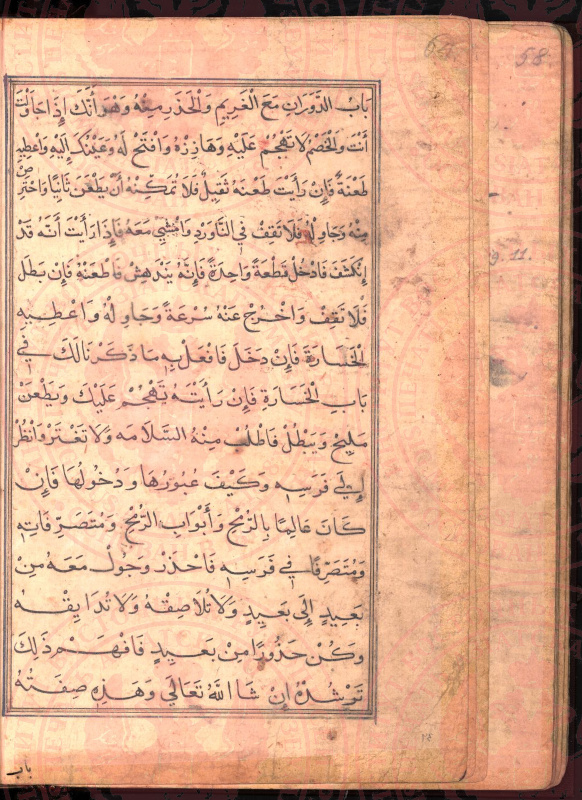 58
باب الدوران مع الغريم والحذر منه وهو أنك إذا جاولت
أنت والخصم لا تهجم عليه وهادنه وافتح له وعينك إليه واعطيه
طعنة فإن رأيت طعنه ثقيل فلا تمكنه أن يطعن ثانيا واحترص
منه وجاوله فلا تقف في الناورد وامشي معه فإذا رأيت أنه قد
إنكشف فادخل قطعة واحدة فإنه يندهش فاطعنه فإن بطل
فلا تقف واخرج عنه سرعة وجاوله واعطيه
الخسارة فإن دخل فافعل به ما ذكرنا لك في
باب الخسارة فإن رأيته تهجم عليك ويطعن
مليح ويبطل فاطلب منه السلامه ولا تغتر وانظر
إلى فرسه وكيف عبورها ودخولها فإن
كان عالما بالرمح وأبواب الرمح ومتصرفاته
ومتصرفا في فرسه فاحذر وجول معه من
بعيد إلى بعيد ولا تلاصقه ولا تدايقه
وكن حذورا من بعيد فافهم ذلك
ترشده إن شا الله تعالى وهذه صفته
باب